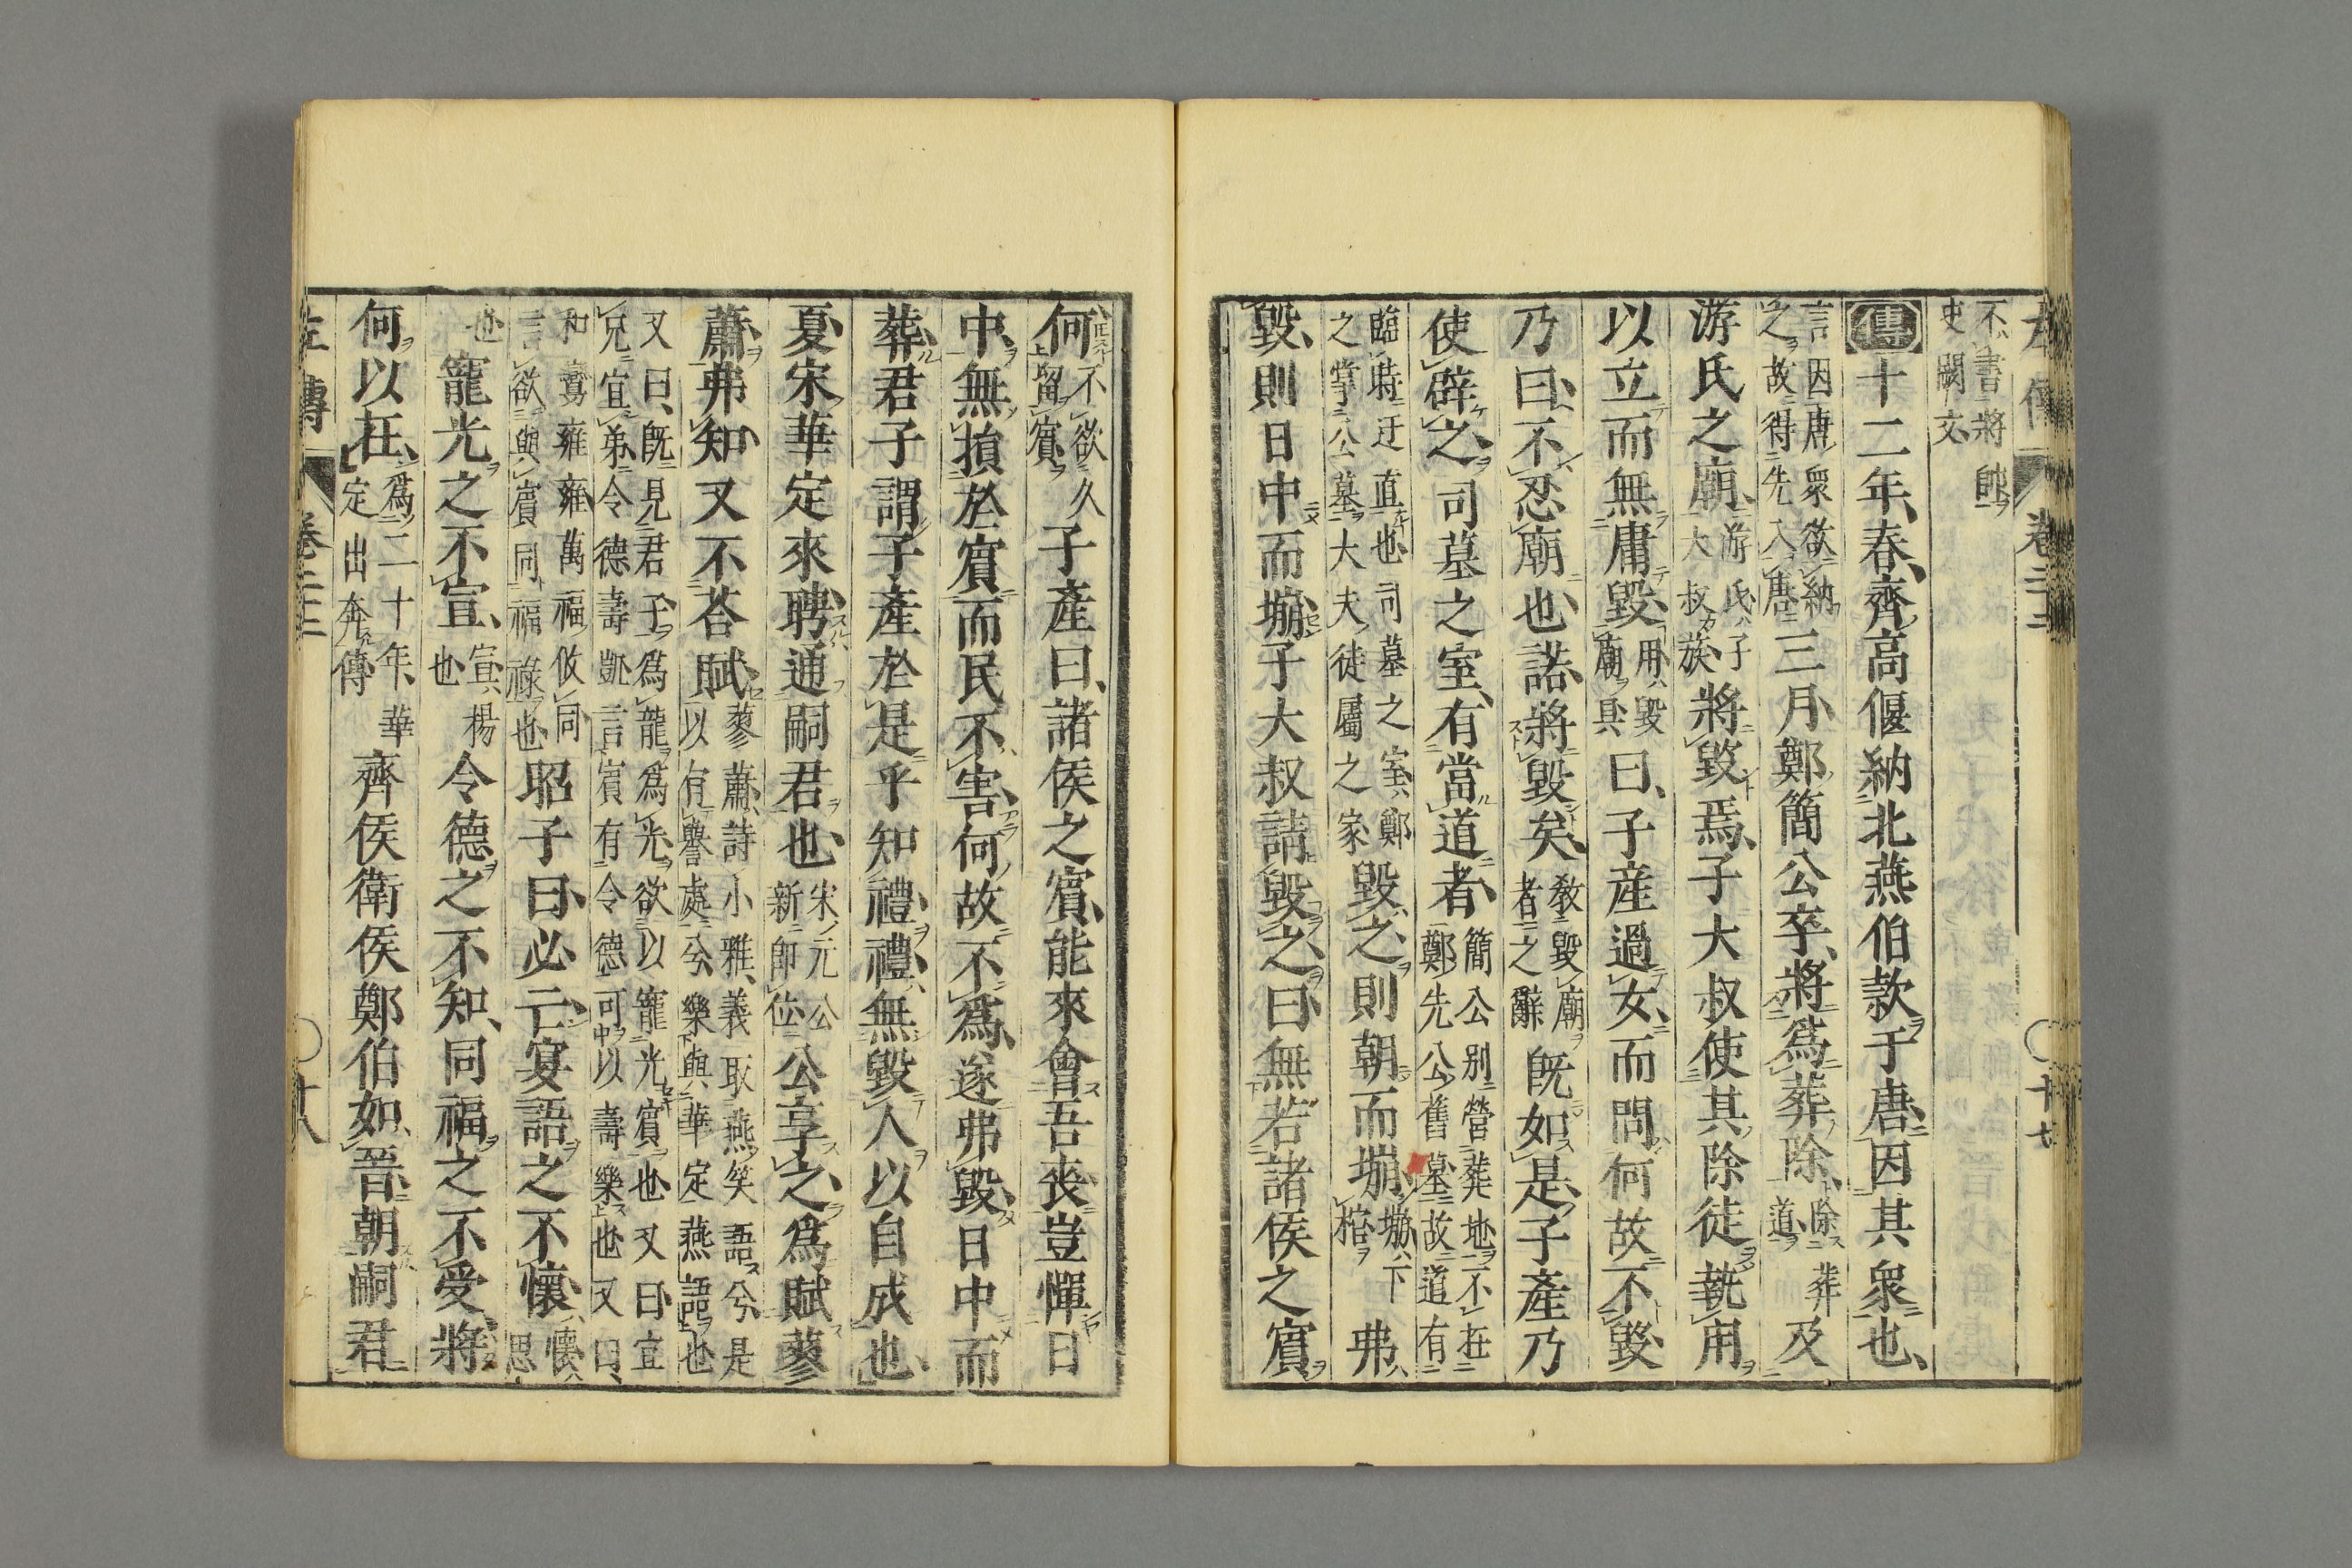 左傳 卷二十二 十七
不書將帥
史闕文
傳十二年、春、齊高偃納北燕伯款于唐、因其衆也、
言因唐衆欲納
之故得先入唐
三月、鄭簡公卒、將爲葬除、
除葬
道
及
游氏之廟、
游氏子
大叔族
將毀焉、子大叔使其除徒執用
以立、而無庸毀、
用毀
廟具
曰、子產過女、而問何故不毀、
乃曰、不忍廟也、諾、將毀矣、
教毀廟
者之辭
旣如是、子產乃
使辟之、司墓之室、有當道者、
簡公別營葬地不在
鄭先公舊墓故道有
臨時迂直也司墓之室鄭
之掌公墓大夫徒屬之家
毀之、則朝而塴、
塴下
棺
弗
毀、則日中而塴、子大叔請毀之、曰、無若諸侯之賓
何、
不欲久
留賓
子產曰、諸侯之賓、能來會吾喪、豈憚日
中、無損於賓、而民不害、何故不爲、遂弗毀、日中而
葬、君子謂子產於是乎知禮、禮無毀人以自成也、
夏、宋華定來聘、通嗣君也、
宋元公
新卽位
公享之、爲賦蓼
蕭、弗知、又不荅賦、
蓼蕭詩小雅、義取燕笑語兮、是
以有譽處兮、樂與華定燕語也
又曰、旣見君子、爲龍爲光、欲以寵光賓也、又曰、宜
兄宜弟、令德壽凱、言賓有令德、可以壽樂也、又曰、
和鸞雍雍、萬福攸同、
言欲與賓同福祿也、
昭子曰、必亡、宴語之不懷、
懷
思
也
寵光之不宣、
宣、揚
也
令德之不知、同福之不受、將
何以在、
爲二十年、華
定出奔傳
齊侯衛侯鄭伯如晉、朝嗣君
左傳 卷二十二 十八